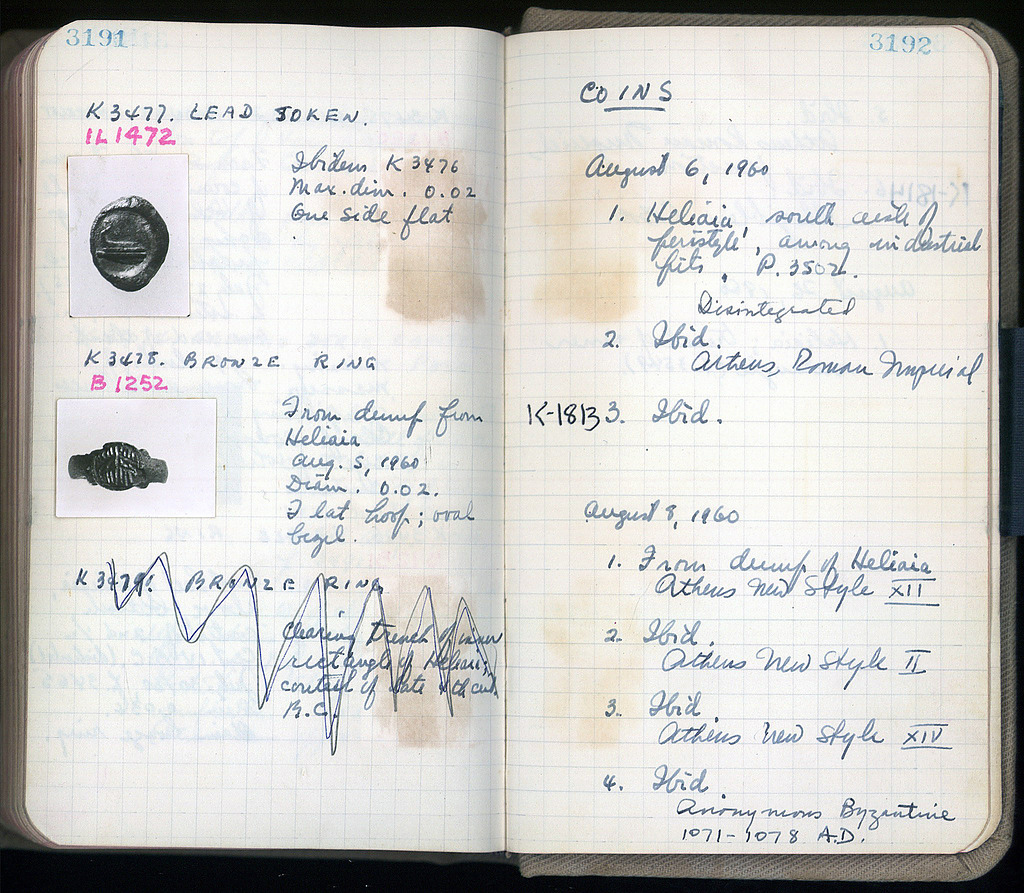 3191
K 3477. LEAD TOKEN.
IL 1472
Ibidem K 3476
Max. dim. 0.02
One side flat
K 3478. BRONZE RING
B 1252
From dump from
Heliaia
Aug. 5, 1960
Diam. 0.02.
Flat hoop; oval
bezel.
K 3479. BRONZE RING
Clearing trench of inner
rectangle of Heliaia;
context of late 4th cent.
B.C.
3192
COINS
August 6, 1960
1. Heliaia, south aisle of
'peristyle', among industrial
pits, P. 3502.
Disintegrated
2. Ibid.
Athens, Roman Imperial
K-1813 3. Ibid.
August 8, 1960
1. From dump of Heliaia
Athens New Style XII
2. Ibid.
Athens New Style II
3. Ibid
Athens New Style XIV
4. Ibid
Anonymous Byzantine
1071-1078 A.D.